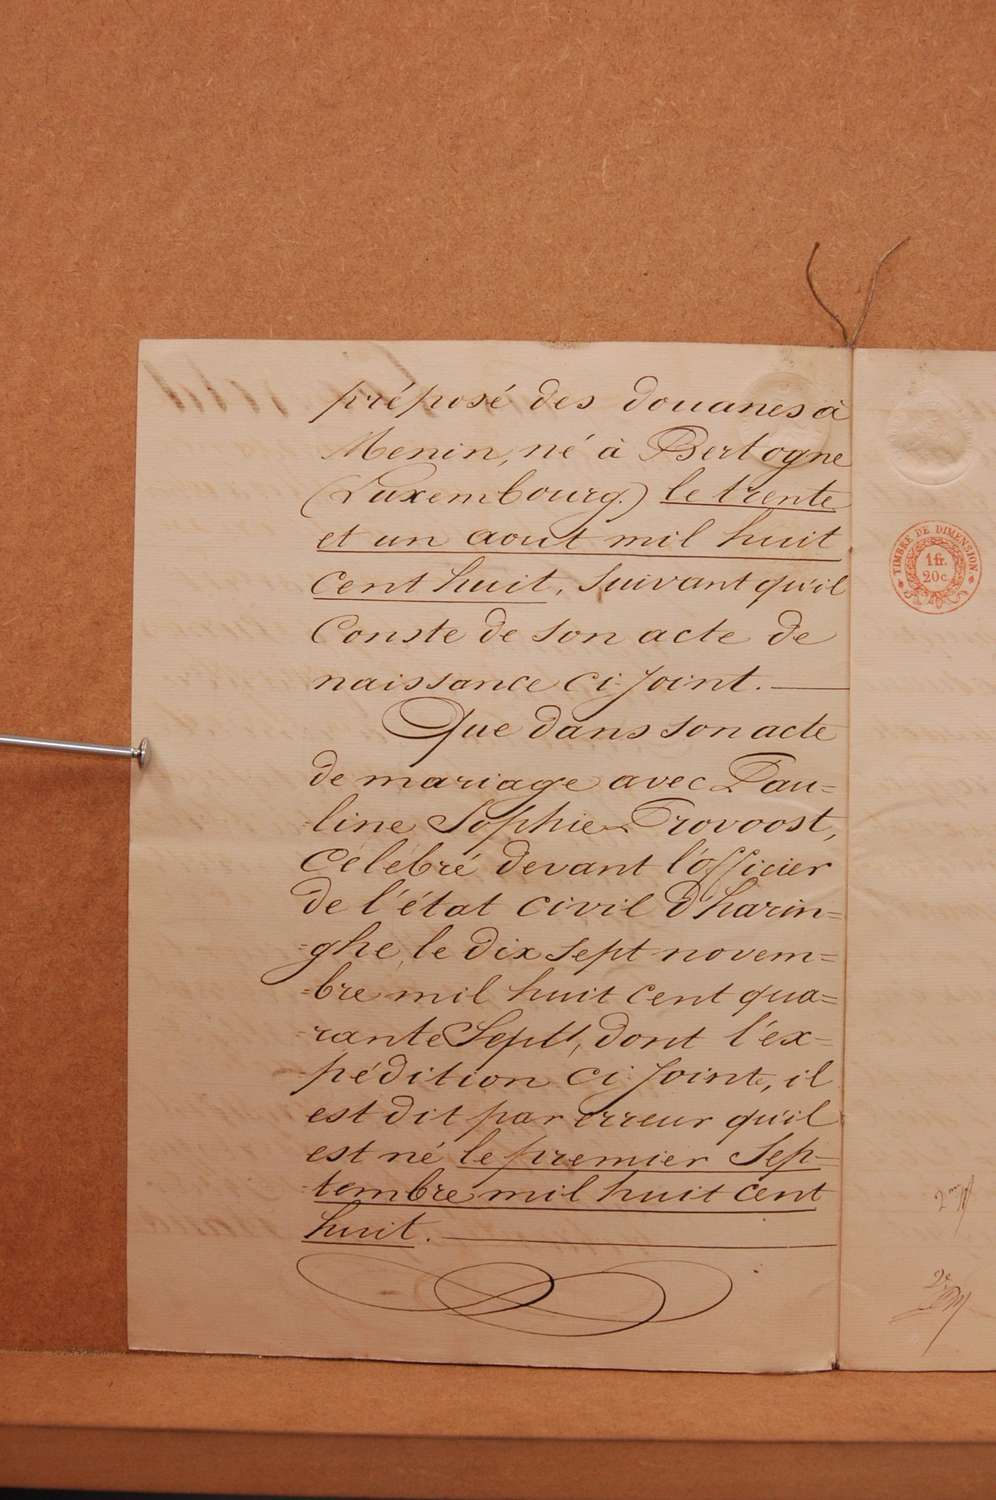 préposé des douanes à
Menin, né à Bertogne
(Luxembourg.) le trente
et un aout mil huit
cent huit, suivant qu'il
Conste de son acte de
naissance ci-joint.
Que dans son acte
de mariage avec Pau=
=line Sophie Provoost,
célébré devant l'officier
de l'état civil d'harin=
=ghe, le dix sept novem=
=bre mil huit cent qua=
=rante Sept, dont l'ex=
=pédition ci-joint, il
est dit par erreur qu'il
est né le premier Sep=
=tembre mil huit cent
huit.
TIMBRE DE DIMENSION
1 fr.
20 c.